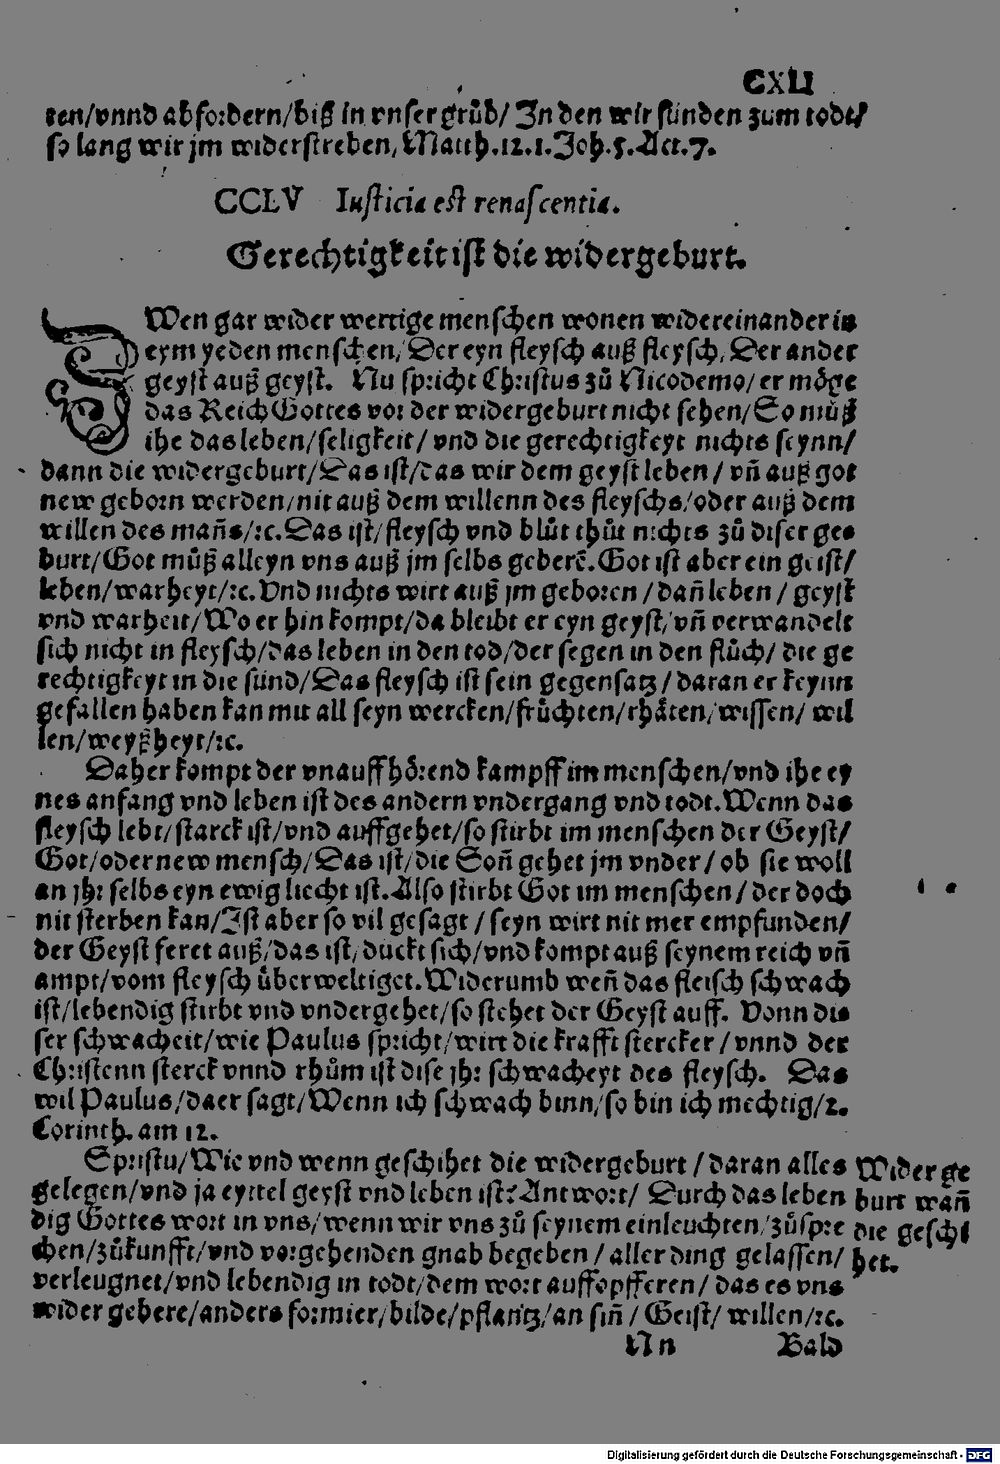 CXLI
ren/vnnd abfordern/biß in vnser grůb/ In den wir sünden zum todt/
so lang wir jm widerstreben, Matth.12.1.Joh.5.Act.7.
CCLV Iusticia est renascentia.
Gerechtigkeit ist die widergeburt.
ZWen gar wider wertige menschen wonen widereinander in
eym yeden menschen/ Der eyn fleysch auß fleysch, Der ander
geyst auß geyst. Nu spricht Christus zů Nicodemo/ er möge
das Reich Gottes vor der widergeburt nicht sehen/ So můß
ihe das leben/seligkeit/ vnd die gerechtigkeyt nichts seynn/
dann die widergeburt/Das ist/das wir dem geyst leben / vñ auß got
new geborn werden/nit auß dem willenn des fleyschs/oder auß dem
willen des mañs/ꝛc.Das ist/fleysch vnd blůt thůt nichts zů diser ge⸗
burt/Got můß alleyn vns auß jm selbs geberẽ.Got ist aber ein geist/
leben/warheyt/ꝛc.Vnd nichts wirt auß jm geboren / dañ leben / geyst
vnd warheit/Wo er hin kompt/da bleibt er eyn geyst/vñ verwandelt
sich nicht in fleysch/das leben in den tod/der segen in den flůch/ die ge
rechtigkeyt in die sünd/Das fleysch ist sein gegensatz / daran er keynn
gefallen haben kan mit all seyn wercken/früchten/thäten/wissen/ wil
len/weyßheyt/ꝛc.
Daher kompt der vnauffhörend kampff im menschen/vnd ihe ey
nes anfang vnd leben ist des andern vndergang vnd todt.Wenn das
fleysch lebt/starck ist/vnd auffgehet/so stirbt im menschen der Geyst/
Got/oder new mensch/Das ist/die Soñ gehet jm vnder / ob sie woll
an jhr selbs eyn ewig liecht ist.Also stirbt Got im menschen / der doch
nit sterben kan/Ist aber so vil gesagt / seyn wirt nit mer empfunden/
der Geyst feret auß/das ist/duckt sich/vnd kompt auß seynem reich vñ
ampt/vom fleysch überweltiget.Widerumb weñ das fleisch schwach
ist/lebendig stirbt vnd vndergehet/so stehet der Geyst auff. Vonn di⸗
ser schwacheit/wie Paulus spricht/wirt die krafft stercker / vnnd der
Christenn sterck vnnd rhům ist dise jhr schwacheyt des fleysch. Das
wil Paulus/da er sagt/Wenn ich schwach binn/so bin ich mechtig/2.
Corinth. am 12.
Spristu/Wie vnd wenn geschihet die widergeburt / daran alles
gelegen/vnd ja eyttel geyst vnd leben ist? Antwort/ Durch das leben
dig Gottes wort in vns/wenn wir vns zů seynem einleuchten/zůspre
chen/zůkunfft/vnd vorgehenden gnad begeben / aller ding gelassen/
verleugnet/vnd lebendig in todt/dem wort auffopfferen/ das es vns
wider gebere/anders formier/bilde/pflantz/an siñ / Geist/ willen/ꝛc.
Wider ge
burt wañ
die geschi
het.
Nn Bald
Digitalisierung gefördert durch die Deutsche Forschungsgemeinschaft - DFG